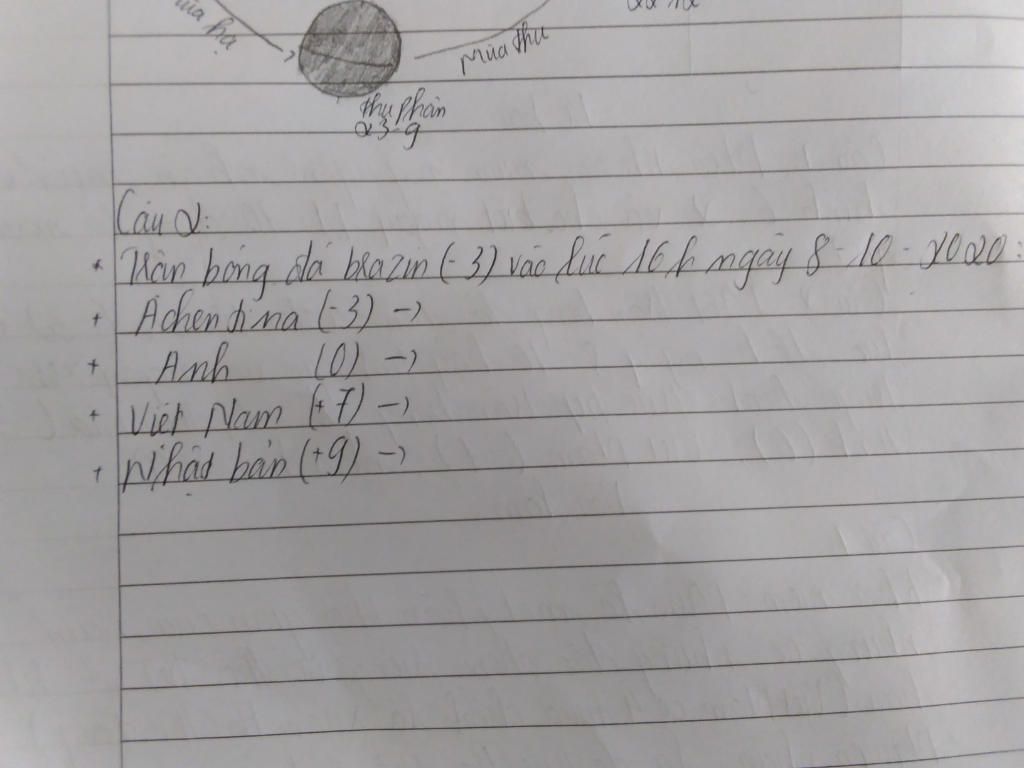 mùa hạ
mùa thu
thu phân
23-9
Câu 2:
* Trận bóng đá brazin (-3) vào lúc 16h ngày 8-10-2020:
+ Achentina (-3) →
+ Anh (0) →
+ Việt Nam (+7) →
+ Nhật bản (+9) →